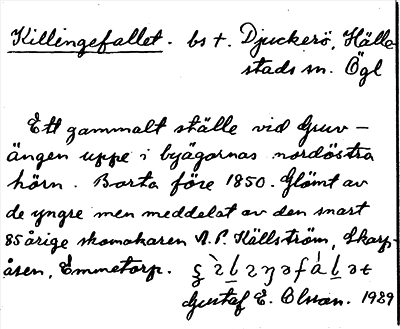 Killingefallet. bs t. Djuckerö, Hälle-
stads sn. Ögl
Ett gammalt ställe vid Gruv-
ängen uppe i byägornas nordöstra
hörn. Borta före 1850. Glömt av
de yngre men meddelat av den snart
85 årige skomakaren A. P. Källström, Skarp-
åsen, Emmetorp.
Gustaf E. Olsson. 1929